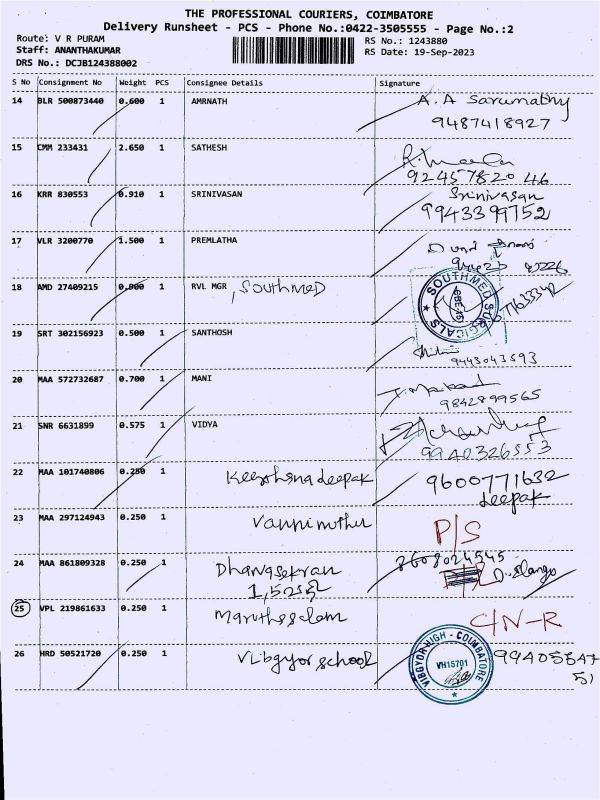 THE PROFESSIONAL COURIERS, COIMBATORE
Delivery Runsheet - PCS - Phone No.:0422-3505555 - Page No.:2
Route: V R PURAM
RS No.: 1243880
Staff: ANANTHAKUMAR
RS Date: 19-Sep-2023
DRS No.: DCJB124388002
S No Consignment No Weight PCS Consignee Details Signature
14 BLR 500873440 0.600 1 AMRNATH A. A Sarumathy
9487418927
15 CMM 233431 2.650 1 SATHESH
92457820 46
16 KRR 830553 0.910 1 SRINIVASAN Srinivasan
9943399752
17 VLR 3200770 1.500 1 PREMLATHA
18 AMD 27409215 0.900 1 RVL MGR , SOUTHMED
SOUTHMED SURGICALS
19 SRT 302156923 0.500 1 SANTHOSH
9443043593
20 MAA 572732687 0.700 1 MANI
9842899565
21 SNR 6631899 0.575 1 VIDYA
9940326553
22 MAA 101740806 0.250 1 Keerthana deepak 9600771632
deepak
23 MAA 297124943 0.250 1 Vannimuthu P/S
24 MAA 861809328 0.250 1 Dhanasekran 8608024545
D. Elango
25 VPL 219861633 0.250 1 Maruthasalam C/N-R
26 HRD 50521720 0.250 1 Vibgyor school
VIBGYOR HIGH - COIMBATORE
VH15701
99405547
51